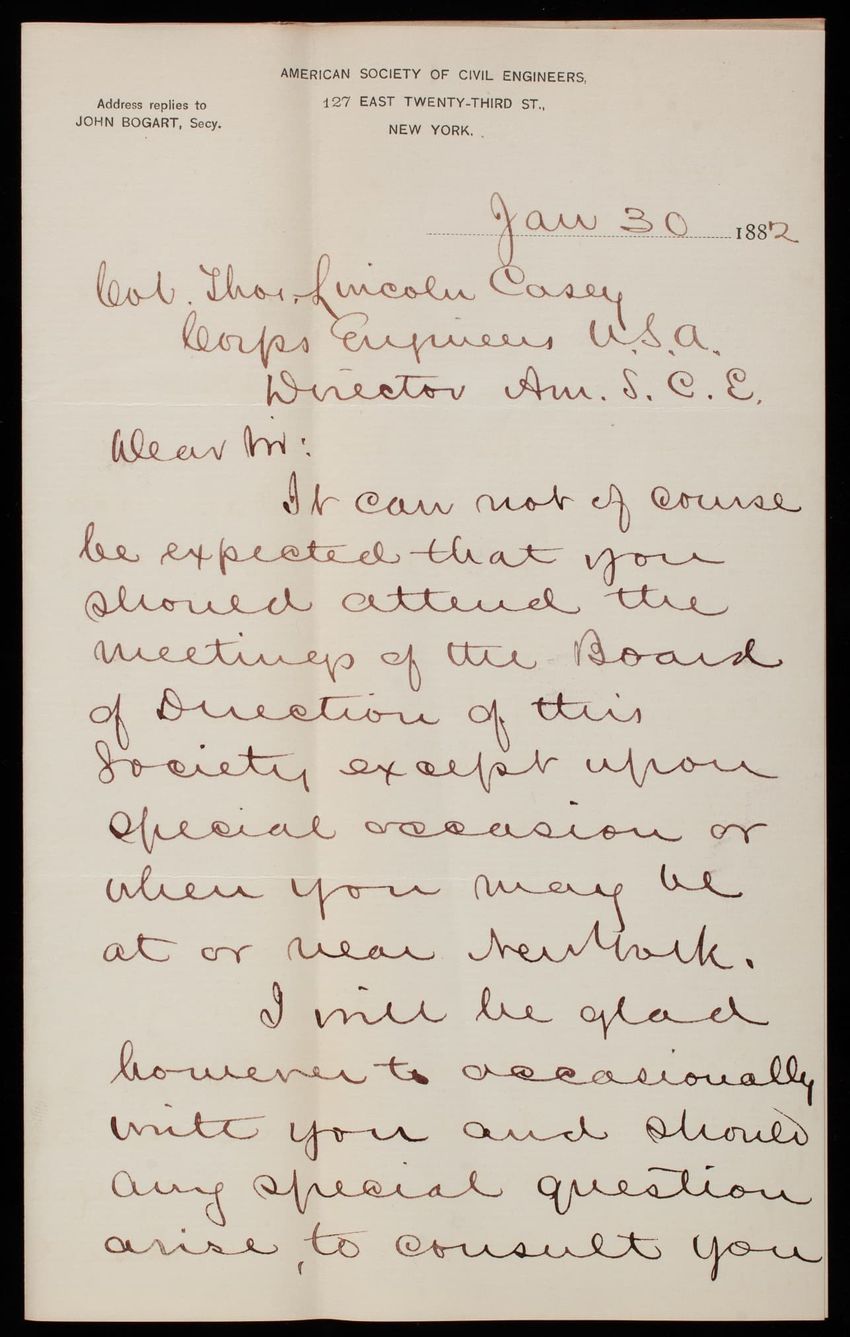 AMERICAN SOCIETY OF CIVIL ENGINEERS,
127 EAST TWENTY-THIRD ST.,
NEW YORK.
Address replies to
JOHN BOGART, Secy.
Jan 30 1882
Col. Thos. Lincoln Casey
Corps Engineers U.S.A.
Director Am. S. C. E.
Dear Sir:
It can not of course
be expected that you
should attend the
meetings of the Board
of Direction of this
Society except upon
special occasion or
when you may be
at or near New York.
I will be glad
however to occasionally
write you and should
any special question
arise, to consult you